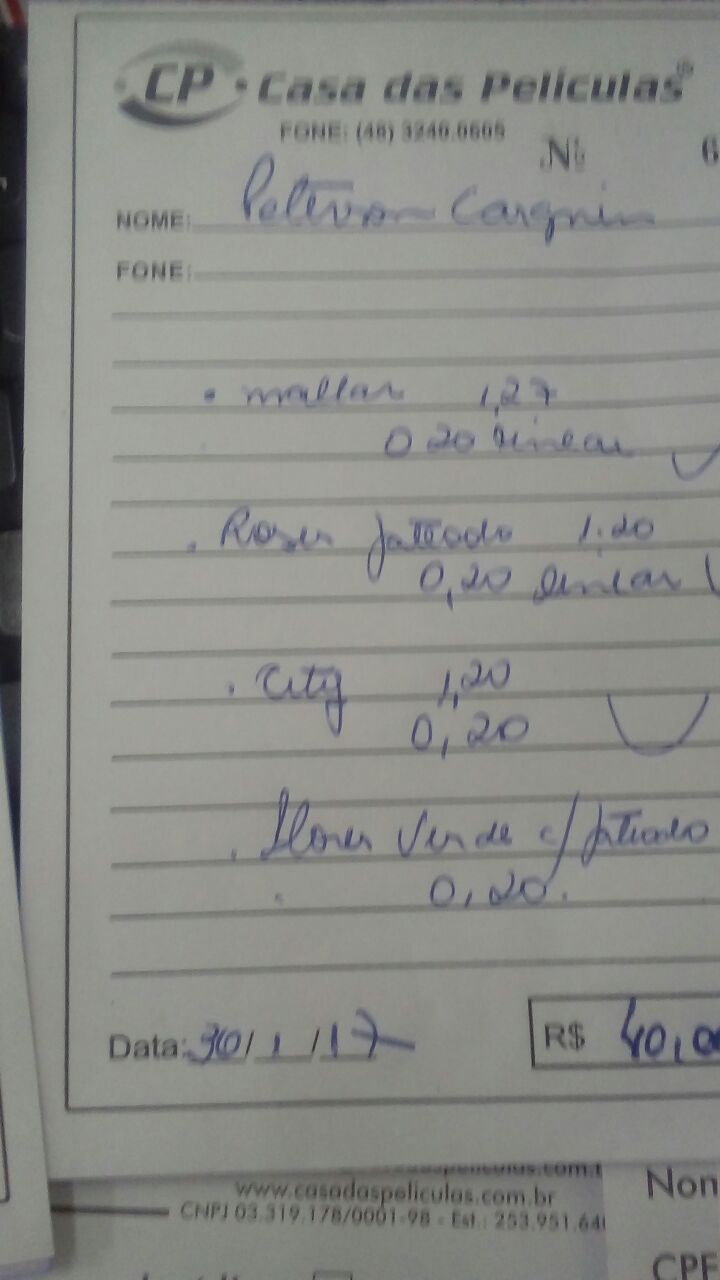 CP Casa das Películas®
FONE: (48) 3240.0605
Nº 6
NOME: Cargnin
FONE:
1,27
0 20 linear
jateado 1.20
0,20 linear
. City 1,20
0,20
. Flores Verde c/ jateado
0,20.
Data: 30/1/17
R$ 40,0
www.casadaspeliculas.com.br
CNPJ 03.319.178/0001-98 - Est.: 253.951.64
Nom
CPF